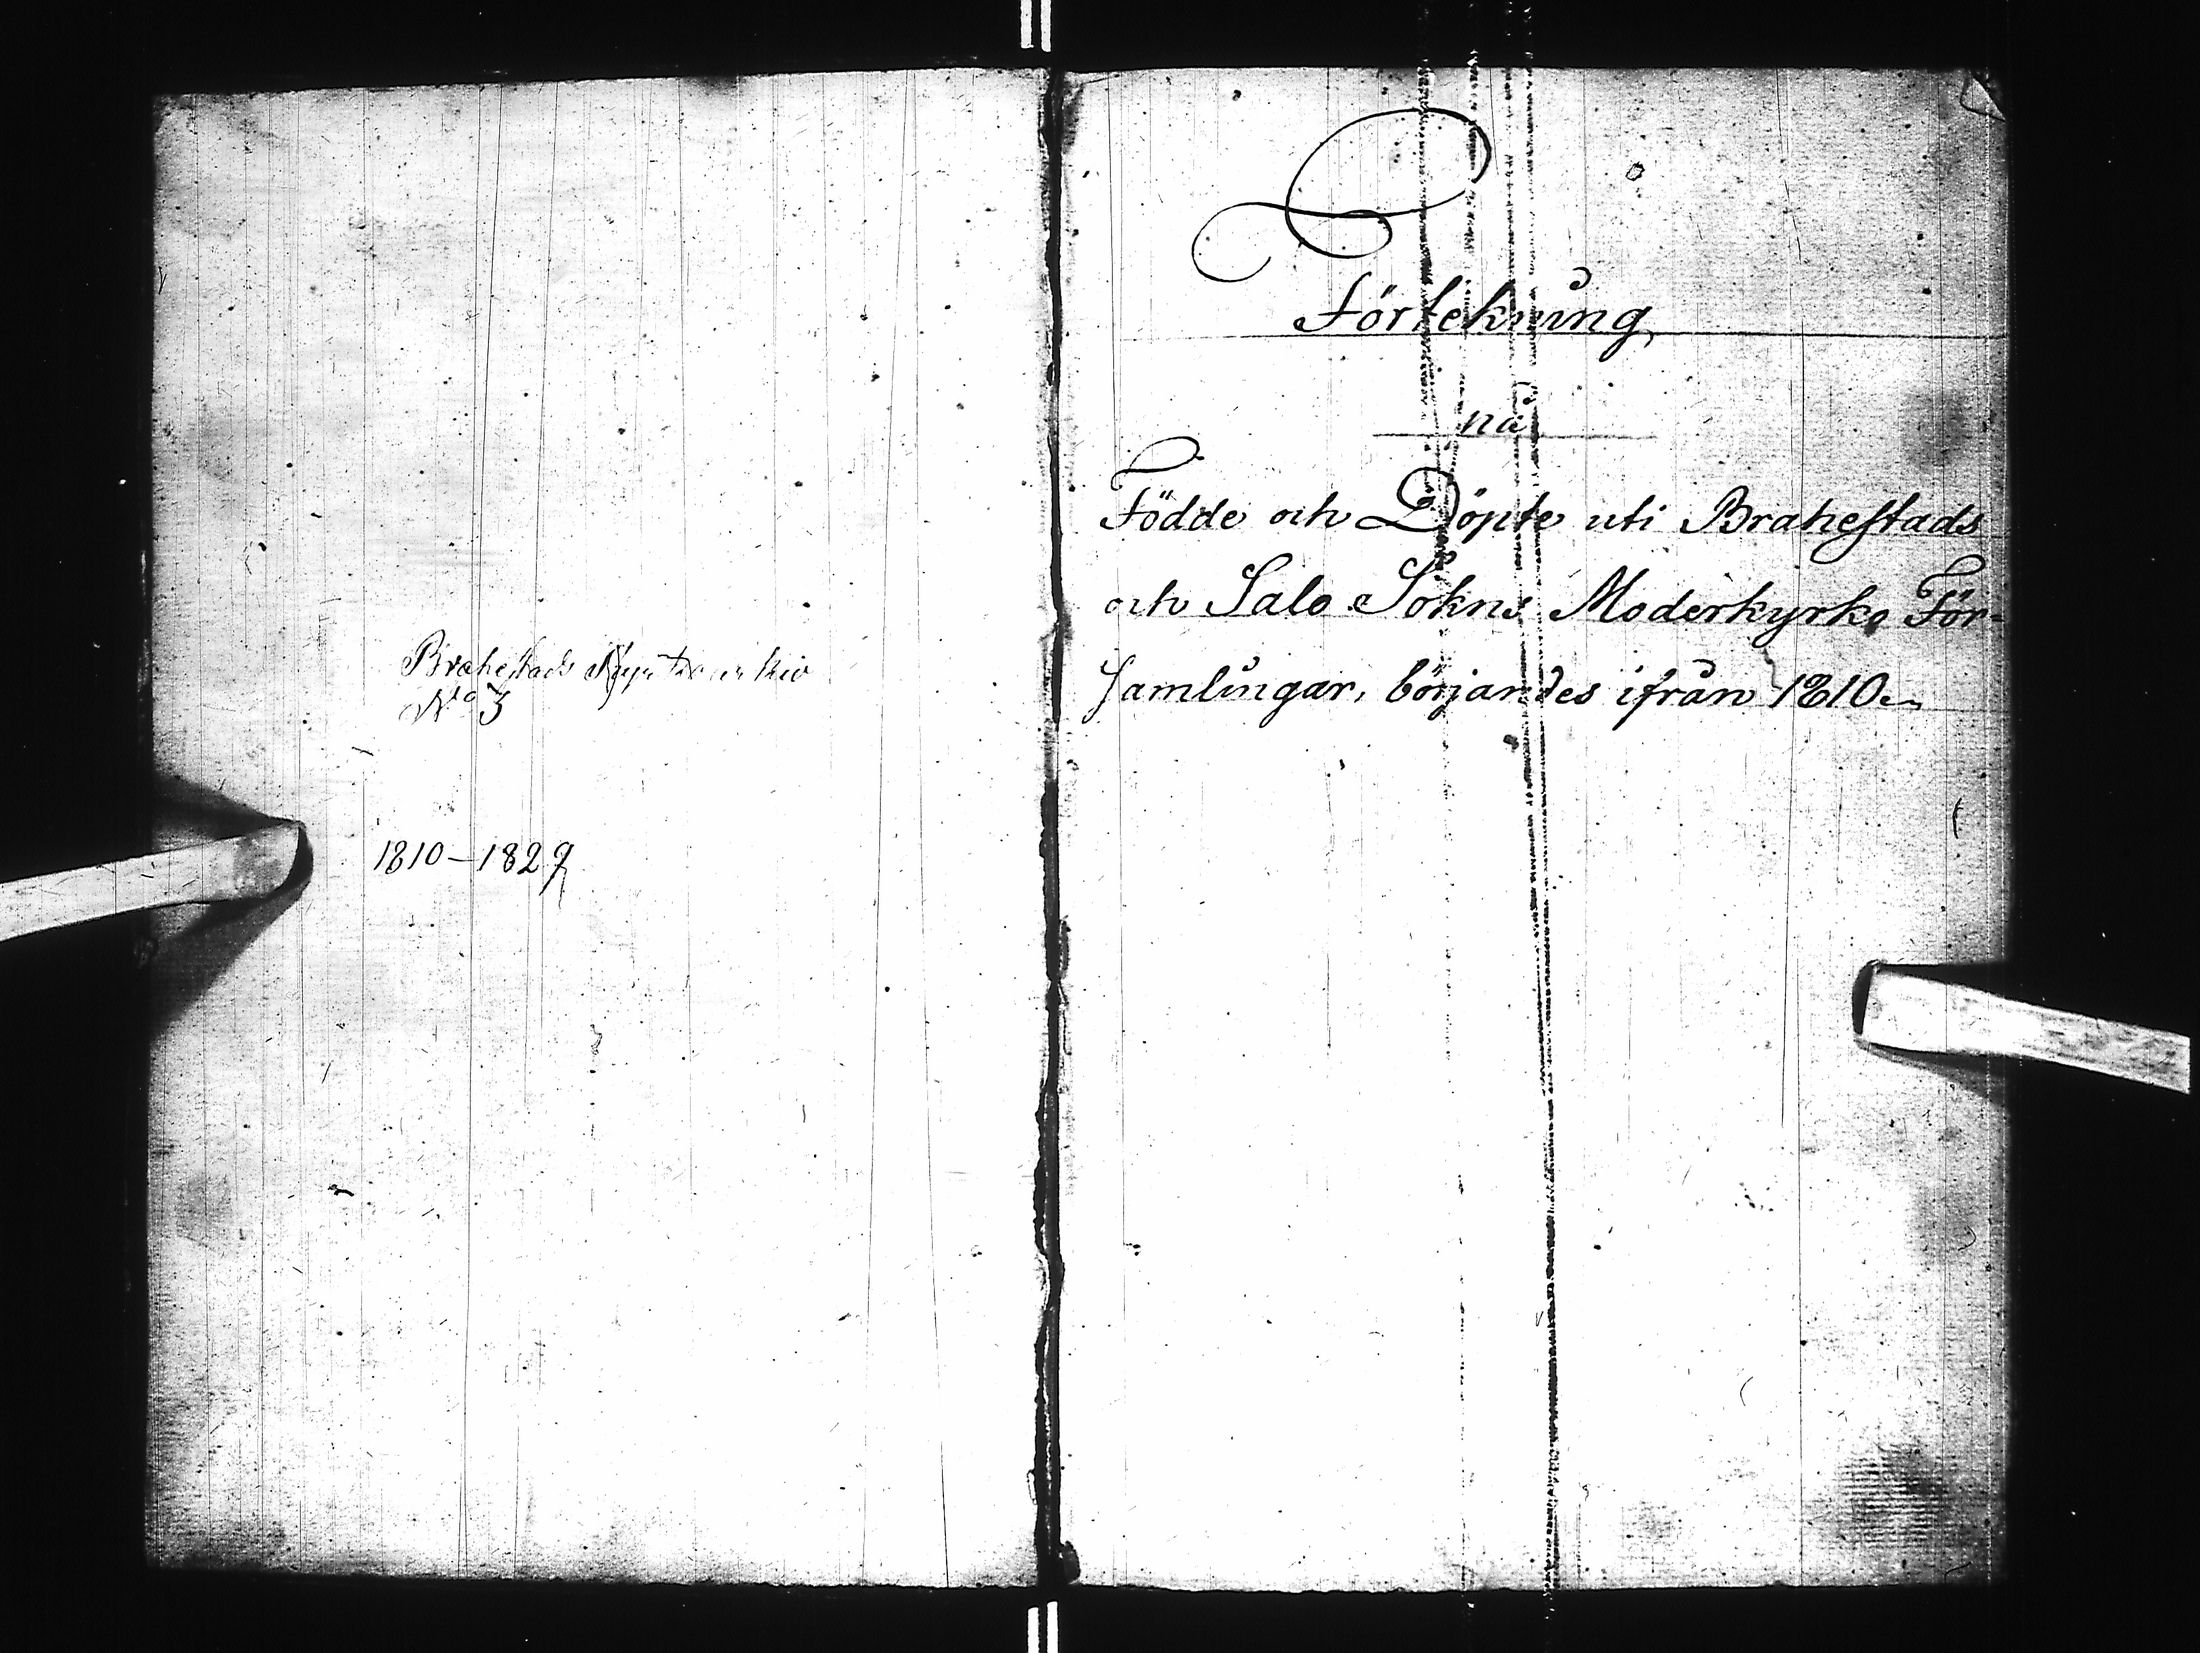 Brahestads Kyrkoarkiv
No 3
1810-1829
Förtekning
på
Födde och Döpte uti Brahestads
och Salo Sokns Moderkyrko För-
samlingar, börjandes ifrån 1810.